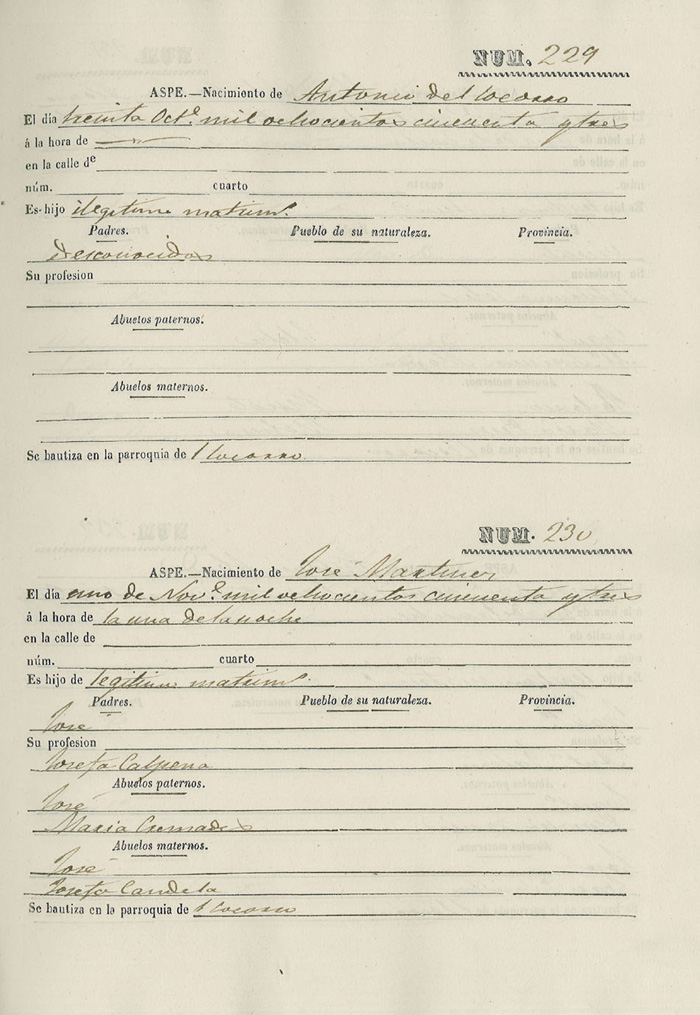 NUM. 229
ASPE.—Nacimiento de Antonio del Socorro
El día treinta Oct.e mil ochocientos cincuenta y tres
á la hora de
en la calle de
núm. cuarto
Es hijo ilegitimo matrim.l
Padres. Pueblo de su naturaleza. Provincia.
Desconocidos
Su profesion
Abuelos paternos.
Abuelos maternos.
Se bautiza en la parroquia de l Socorro
NUM. 230
ASPE.—Nacimiento de José Martinez
El día uno de Nov.e mil ochocientos cincuenta y tres
á la hora de la una de la noche
en la calle de
núm. cuarto
Es hijo de legitimo matrim.l
Padres. Pueblo de su naturaleza. Provincia.
José
Su profesion
Josefa Calpena
Abuelos paternos.
José
Maria Cremades
Abuelos maternos.
José
Josefa Candela
Se bautiza en la parroquia de l Socorro